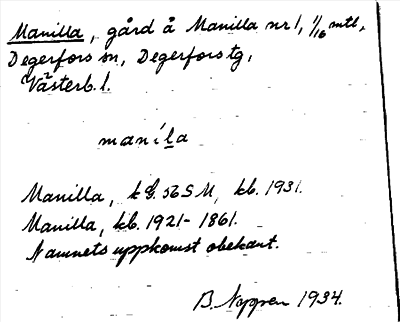 Manilla, gård å Manilla nr 1, 1/16 mtl,
Degerfors sn, Degerfors tg,
Västerb. l.
manila
Manilla, kG. 56 S M, kb. 1931.
Manilla, kb. 1921-1861.
Namnets uppkomst obekant.
B. Nygren 1934.